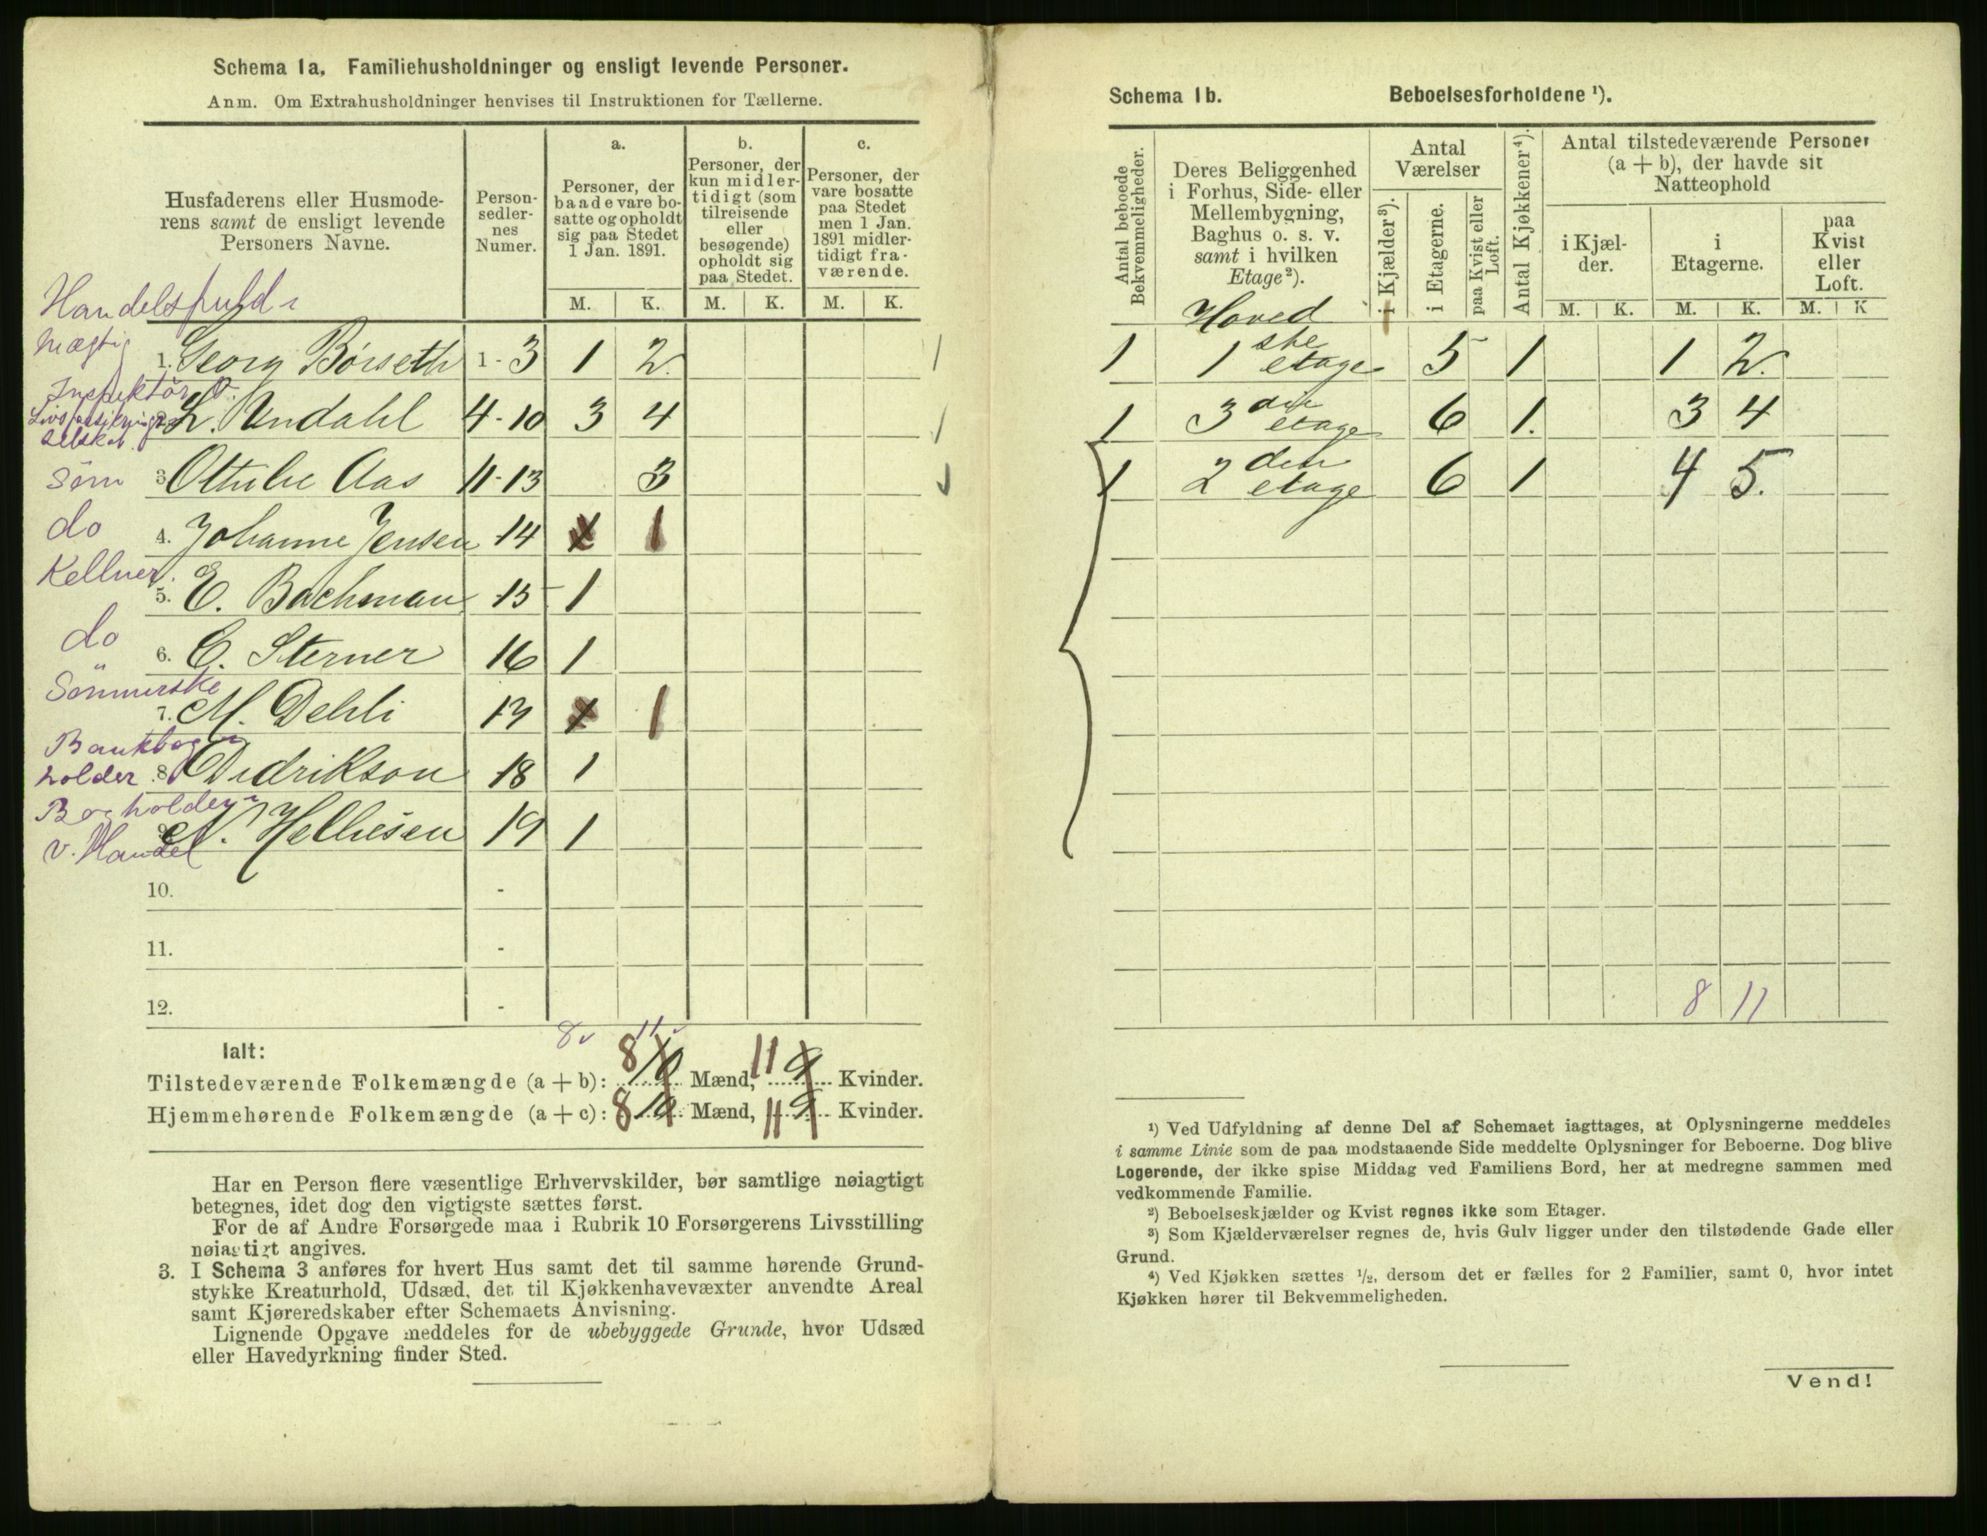 Schema 1a. Familiehusholdninger og ensligt levende Personer.
Anm. Om Extrahusholdninger henvises til Instruktionen for Tællerne.
Husfaderens eller Husmoderens samt de ensligt levende Personers Navne.
Person-sedler-nes Numer.
a. Personer, der baade vare bosatte og opholdt sig paa Stedet 1 Jan. 1891.
b. Personer, der kun midlertidigt (som tilreisende eller besøgende) opholdt sig paa Stedet.
c. Personer, der vare bosatte paa Stedet men 1 Jan. 1891 midlertidigt fraværende.
M. K. M. K. M. K.
Handelsfuld-
mægtig 1. Georg Børseth 1-3 1 2. 1
Inspektør v.
Livsforsikrings 2. L. Undahl 4-10 3 4 1
selskab.
Søm 3. Ottilie Aas 11-13 3
do 4. Johanne Jensen 14 1 1
Kellner. 5. E. Bachman 15 1
do 6. C. Sterner 16 1
Sømmerske 7. M. Dehli 17 1 1
Bankbog
holder 8. Didrikson 18 1
Bogholder
v. Handel 9. N. Helliesen 19 1
10. -
11. -
12. -
8 11
Ialt:
Tilstedeværende Folkemængde (a + b): 8 10 Mænd, 11 9 Kvinder.
Hjemmehørende Folkemængde (a + c): 8 10 Mænd, 11 9 Kvinder.
Har en Person flere væsentlige Erhvervskilder, bør samtlige nøiagtigt
betegnes, idet dog den vigtigste sættes først.
For de af Andre Forsørgede maa i Rubrik 10 Forsørgerens Livsstilling
nøiagtigt angives.
3. I Schema 3 anføres for hvert Hus samt det til samme hørende Grund-
stykke Kreaturhold, Udsæd, det til Kjøkkenhavevæxter anvendte Areal
samt Kjøreredskaber efter Schemaets Anvisning.
Lignende Opgave meddeles for de ubebyggede Grunde, hvor Udsæd
eller Havedyrkning finder Sted.
Schema 1b. Beboelsesforholdene ¹).
Antal beboede Bekvemmeligheder.
Deres Beliggenhed i Forhus, Side- eller Mellembygning, Baghus o. s. v. samt i hvilken Etage²).
Antal Værelser
i Kjælder³).
i Etagerne.
paa Kvist eller Loft.
Antal Kjøkkener⁴).
Antal tilstedeværende Personer (a + b), der havde sit Natteophold
i Kjælder.
i Etagerne.
paa Kvist eller Loft.
M. K. M. K. M. K
Hoved
1 1 ste etage 5 1 1 2.
1 3 den etage 6 1. 3 4
1 2 den etage 6 1 4 5.
8 11
¹) Ved Udfyldning af denne Del af Schemaet iagttages, at Oplysningerne meddeles
i samme Linie som de paa modstaaende Side meddelte Oplysninger for Beboerne. Dog blive
Logerende, der ikke spise Middag ved Familiens Bord, her at medregne sammen med
vedkommende Familie.
²) Beboelseskjælder og Kvist regnes ikke som Etager.
³) Som Kjælderværelser regnes de, hvis Gulv ligger under den tilstødende Gade eller
Grund.
⁴) Ved Kjøkken sættes ½, dersom det er fælles for 2 Familier, samt 0, hvor intet
Kjøkken hører til Bekvemmeligheden.
Vend!